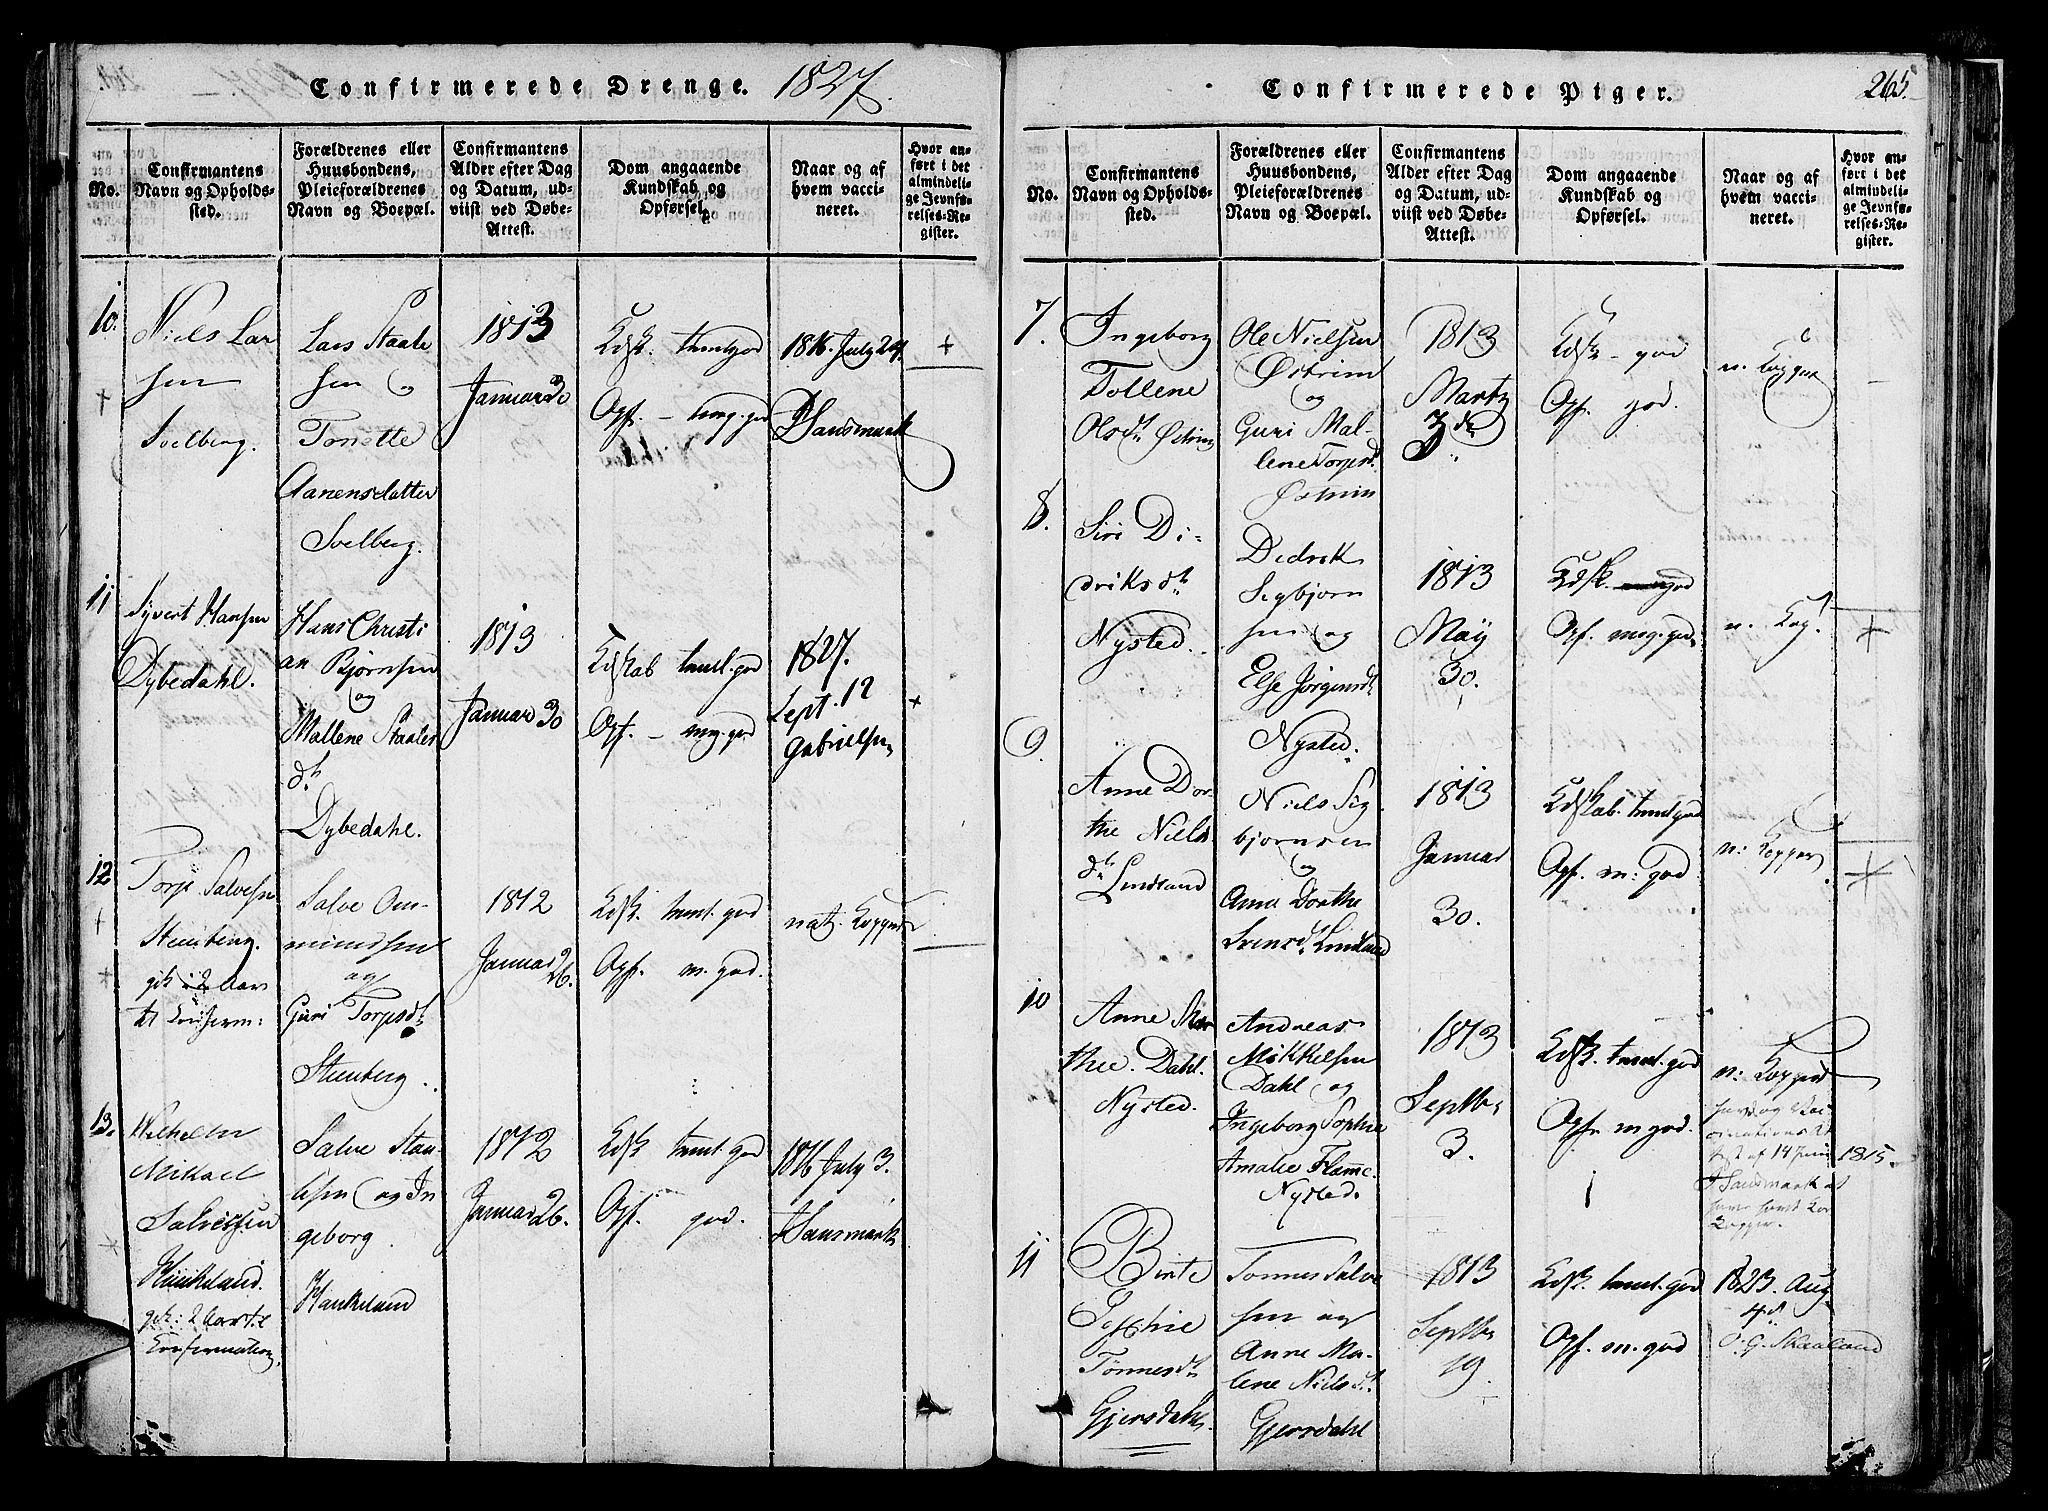 Confirmerede Drenge. 1827.
No.
Confirmantens
Navn og Opholds-
sted.
Forældrenes eller
Huusbondens,
Pleieforældrenes
Navn og Boepæl.
Confirmantens
Alder efter Dag
og Datum, ud-
viist ved Døbe-
Attest.
Dom angaaende
Kundskab og
Opførsel.
Naar og af
hvem vacci-
neret.
Hvor an-
ført i det
almindeli-
ge Jevnfø-
relses-Re-
gister.
10.
Niels Lar
sen
Svelberg.
Lars Staale
sen og
Tonette
Aanensdatter
Svelberg.
1813
Januar 30
Kdsk. teml god
Opf. – meg. god
1816. July 24.
Sandsmark
+
11
Syvert Hansen
Dybedahl.
Hans Christi
an Bjørnsen
og
Mallene Staales
dtr
Dybedahl.
1813
Januar 30
Kdskab temel. god
Opf. – meg. god
1827.
Sept. 12
Gabrielsen
+
12
Torje Salvesen
Steenberg.
gik 2 Aar
til Konferm:
Salve Om-
mundsen
og
Guri Torjesdtr
Steenberg.
1812
Januar 26.
Kdsk. temt. god
Opf. m. god.
nat. Kopper
13.
Wilhelm
Mikael
Salvesen
Haukeland.
gik: 2 Aar til
Confermation.
Salve Staa-
lesen og In
geborg
Haukeland
1812
Januar 26.
Kdsk temt. god
Opf. god.
1816 July 3.
Sandsmark
Confirmerede Piger. 265.
No.
Confirmantens
Navn og Opholds-
sted.
Forældrenes eller
Huusbondens,
Pleieforældrenes
Navn og Boepæl.
Confirmantens
Alder efter Dag
og Datum, ud-
viist ved Døbe-
Attest.
Dom angaaende
Kundskab og
Opførsel.
Naar og af
hvem vacci-
neret.
Hvor an-
ført i det
almindeli-
ge Jevnfø-
relses-Re-
gister.
7.
Ingeborg
Tollene
Olsdtr Østrim
Ole Nielsen
Østrim
og
Guri Mal-
lene Torjesd.
Østrim
1813
Martz
3de
Kdsk – god
Opf. god.
n. Kopper
8.
Siri Di-
driksdtr
Nysted.
Dedrik
Sigbjørn
sen og
Else Jørgensdtr
Nysted.
1813
May
30.
Kdsk. god
Opf. meg. god.
n. Kop.
+
9.
Anne Dor-
the Niels
dtr Lindland
Niels Sig
bjørnsen
og
Anna Dorthe
Svensdtr Lindland
1813
Januar
30.
Kdskab. temt god
Opf. m: god
n: Kopper
+
10
Anne Mar
thee. Dahl.
Nysted.
Andreas
Mikkelsen
Dahl og
Ingeborg Sophie
Amalie Flamme.
Nysted.
1813
Septbr
3.
Kdsk. temt. god
Opf. m god.
n: Kopper
havd og Vac
cinations At
test af 14 Juni 1815.
Sandsmark at
have havt Koe
Kopper.
11
Birte
Sophie
Tønnesdtr
Gjersdahl.
Tønnes Salve
sen og
Anne Ma-
lene Nielsdt.
Gjersdahl
1813
Septbr
19.
Kdsk. temt. god
Opf. m. god
1823. Aug.
4d.
O. G. Skaaland